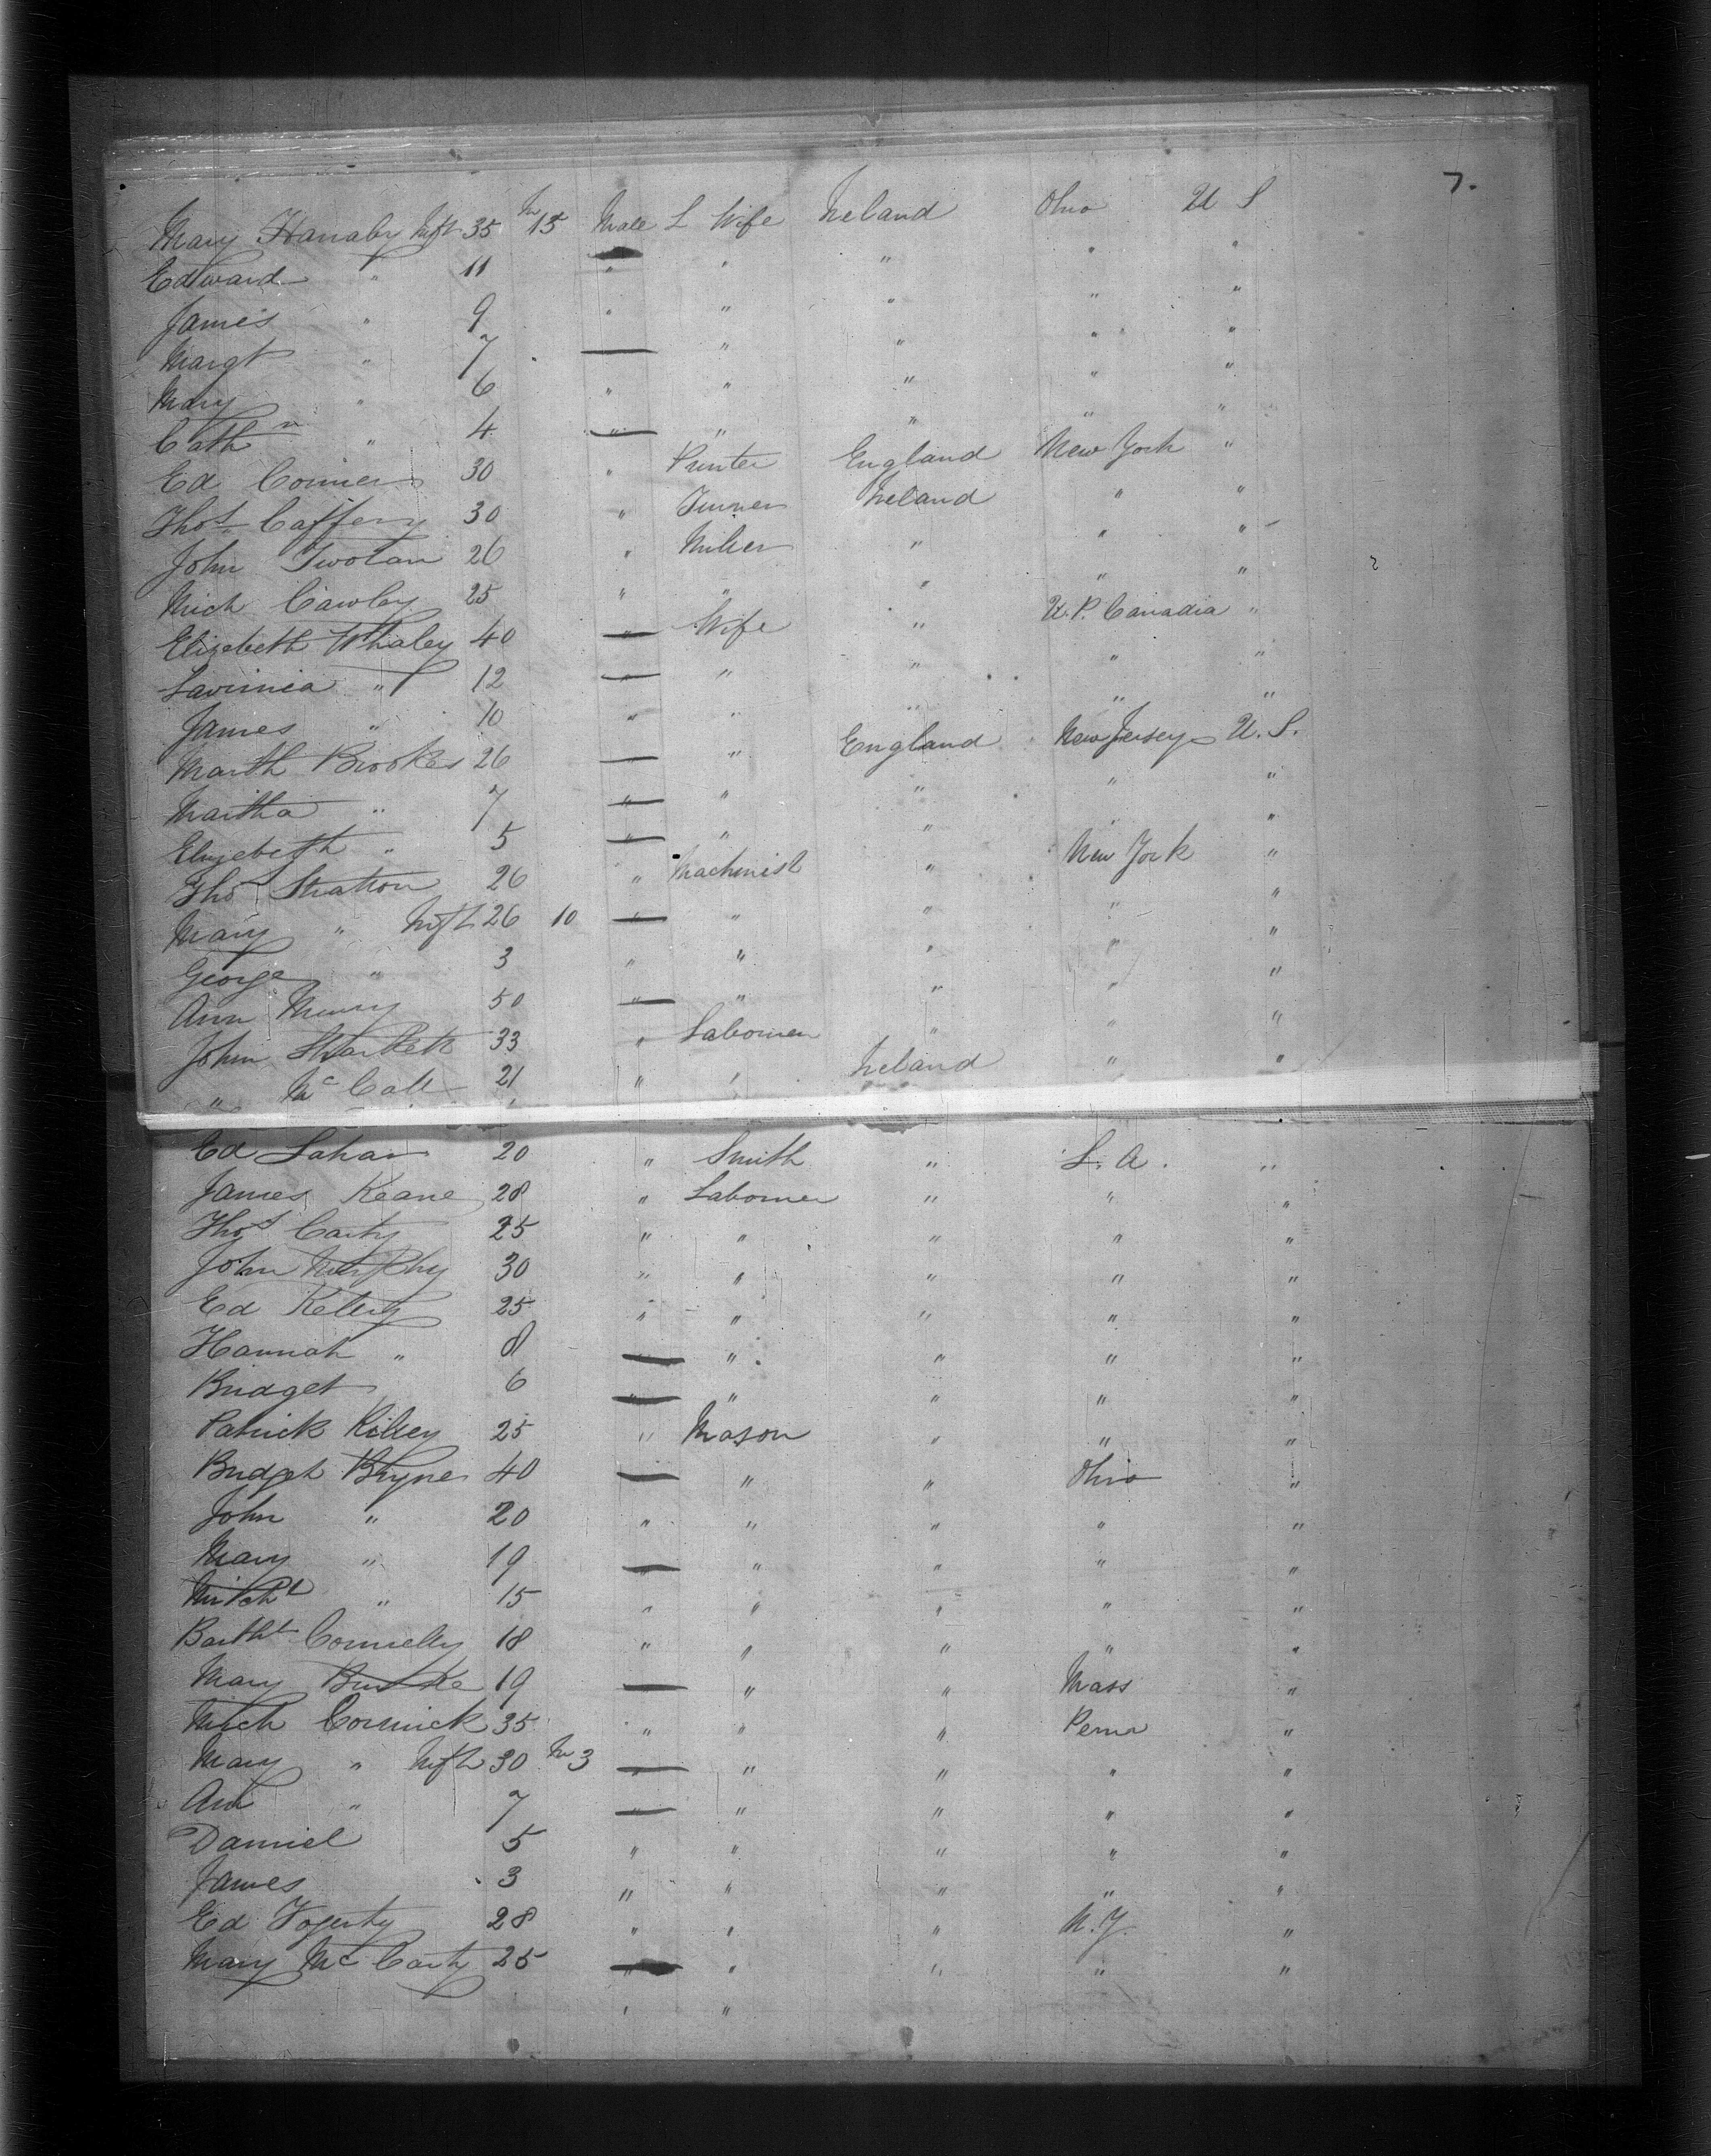 7.
Mary Hanaby Inft 35 m 15 Male L Wife Ireland Ohio U S
Edward " 11 " " " " "
James " 9 " " " " "
Margt " 7 " " " "
Mary " 6 " " " " "
Cath n " 4 " " " " "
Ed Conner 30 " Printer England New York "
Thos Caffery 30 " Tinner Ireland " "
John Twolan 26 " Miller " " "
Mich Cawley 25 " " " " "
Elizebeth Whaley 40 " Wife " U. P. Canadia "
Lavinnia " 12 " " " " "
James " 10 " " " " "
Marth Brookes 26 " England New Jersey U. S.
Martha " 7 " " " " "
Elizebeth " 5 " " " " "
Thos Stratton 26 " Machinist " New York "
Mary " Inft 26 10 " " " " "
George " 3 " " " " "
Ann 50 " " " " "
John 33 " Labourer " " "
" Mc Call 21 " " Ireland " "
Ed Lahan 20 " Smith " L. A. "
James Keane 28 " Labourer " " "
Thos Carty 25 " " " " "
John Murphy 30 " " " " "
Ed Kelley 25 " " " " "
Hannah " 8 " " " " "
Bridget 6 " " " " "
Patrick Killey 25 " Mason " " "
Bridget Bhyne 40 " " " Ohio "
John " 20 " " " " "
Mary " 19 " " " " "
Mitchl " 15 " " " " "
Bartht Connelly 18 " " " " "
Mary Burke 19 " " Mass "
Mich Cormick 35 " " " Penna "
Mary " Inft 30 m 3 " " " " "
Ann " 7 " " " " "
Danniel 5 " " " " "
James 3 " " " " "
Ed Fogerty 28 " " " N. Y. "
Mary Mc Carty 25 " " " " "
" "